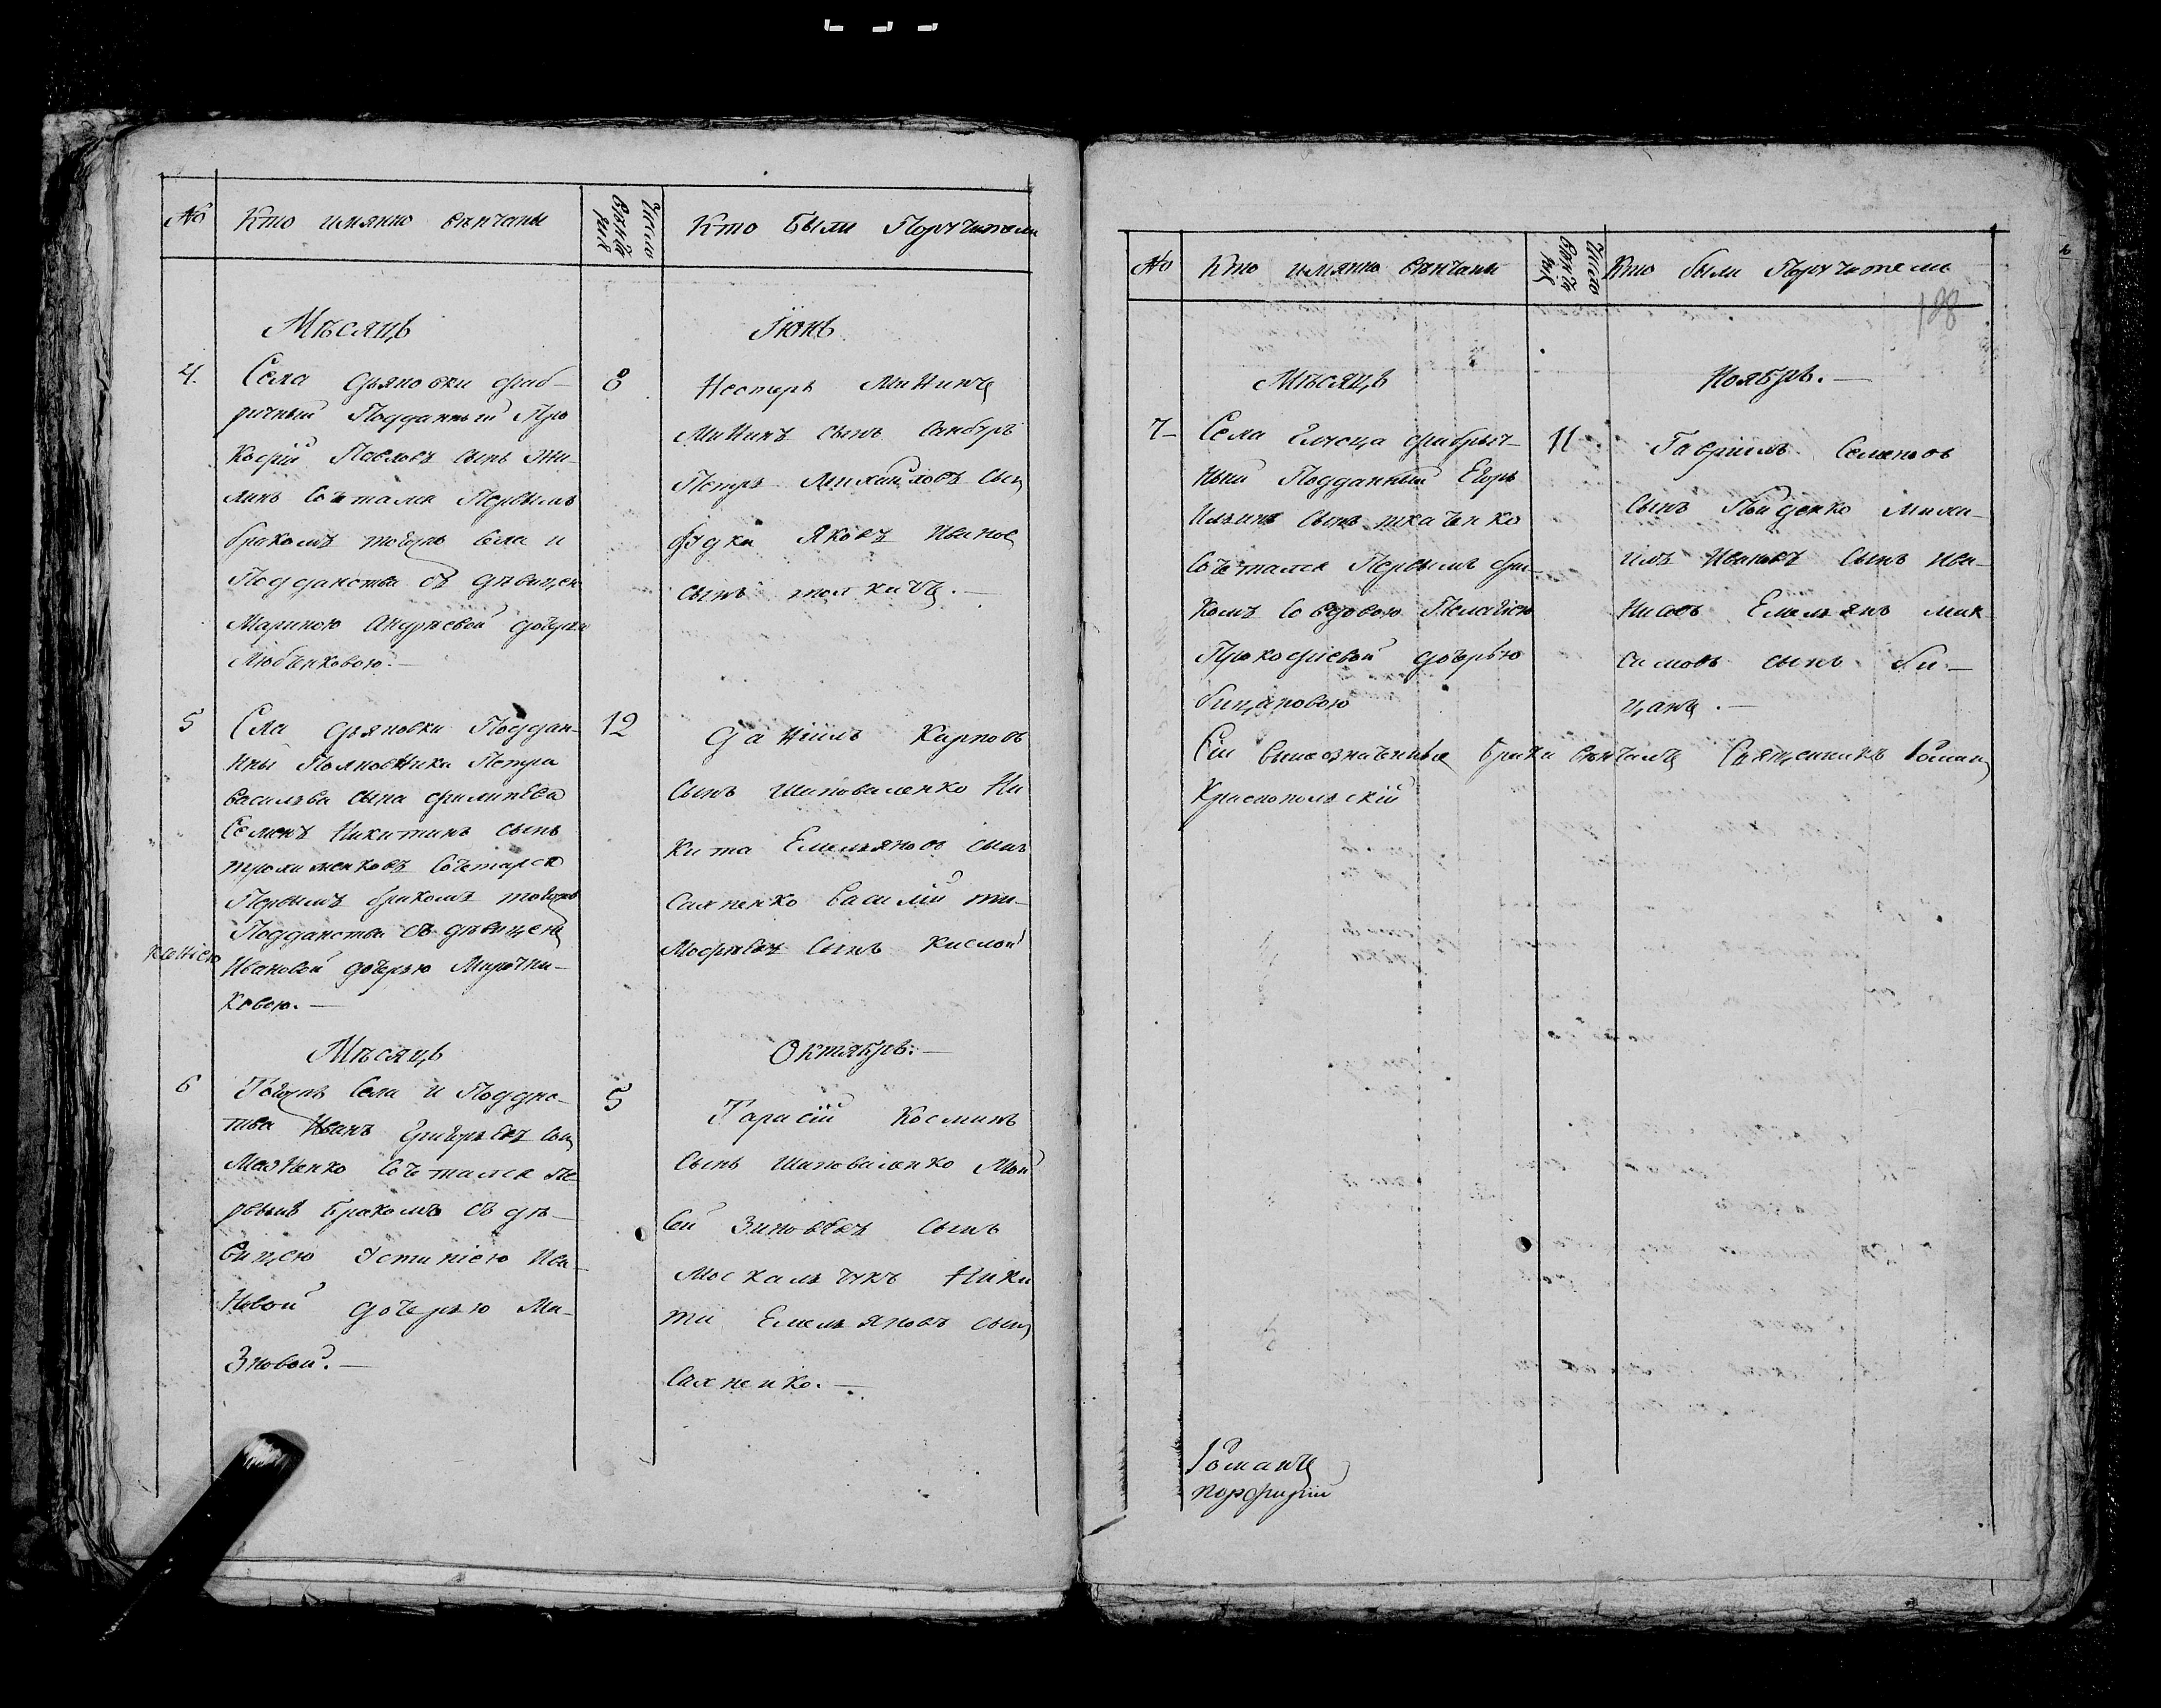 № Кто имянно вѣнчаны Число вѣнча ния Кто были Поручители
Мѣсяцъ Іюнь
4. 8
Села Дьяковки фаб-
ричный Подданный Про
кофій Павловъ сынъ
сочетался Первымъ
бракомъ тогожъ села и
Подданства съ дѣвицею
Мариною Андреевой дочерью
Любченковою.—
Несторъ Мининъ
Мининъ сынъ
Петръ Михайловъ сынъ
Яковъ Ивановъ
сынъ
5 12
Села Дьяковки Поддан-
ный Полковника Петра
Васильева сына Филипьева
Семенъ Никитинъ сынъ
сочетался
Первымъ бракомъ тогожъ
Подданства съ дѣвицею
Ксенiею
Ивановой дочерью Мирочни-
ковою.—
Даніилъ Карповъ
сынъ Шаповаленко Ни
кита Емельяновъ сынъ
Сахненко Василій Ти-
мофѣевъ сынъ Кислой
Мѣсяцъ Октябрь.—
6 5
Тогожъ села и Поддан-
ства Иванъ Григорьевъ сынъ
сочетался Пе
рвымъ бракомъ съ дѣ-
вицею Устиніею Ива-
новой дочерью Ма-
зновой.—
Тарасій Косминъ
сынъ Шаповаленко Мои
сей Зиновьевъ сынъ
Москальчукъ Ники
та Емельяновъ сынъ
Сахненко.—
№ Кто имянно вѣнчаны Число вѣнча ния Кто были Поручители
188
Мѣсяцъ Ноябрь.—
7- 11
Села фабрич-
ный Подданный Егоръ
Ильинъ сынъ Ткаченко
сочетался Первымъ бра-
комъ со вдовою Пелагіею
Прокофіевой дочерью
Бицановою
Гавріилъ Семеновъ
сынъ Гайденко Миха-
илъ Ивановъ сынъ Ива-
нисовъ Емельянъ Мак
симовъ сынъ Би-
цанъ.—
Сіи вышеозначенные браки вѣнчалъ Священникъ Романъ
Краснопольскій
Романъ
Порфирій